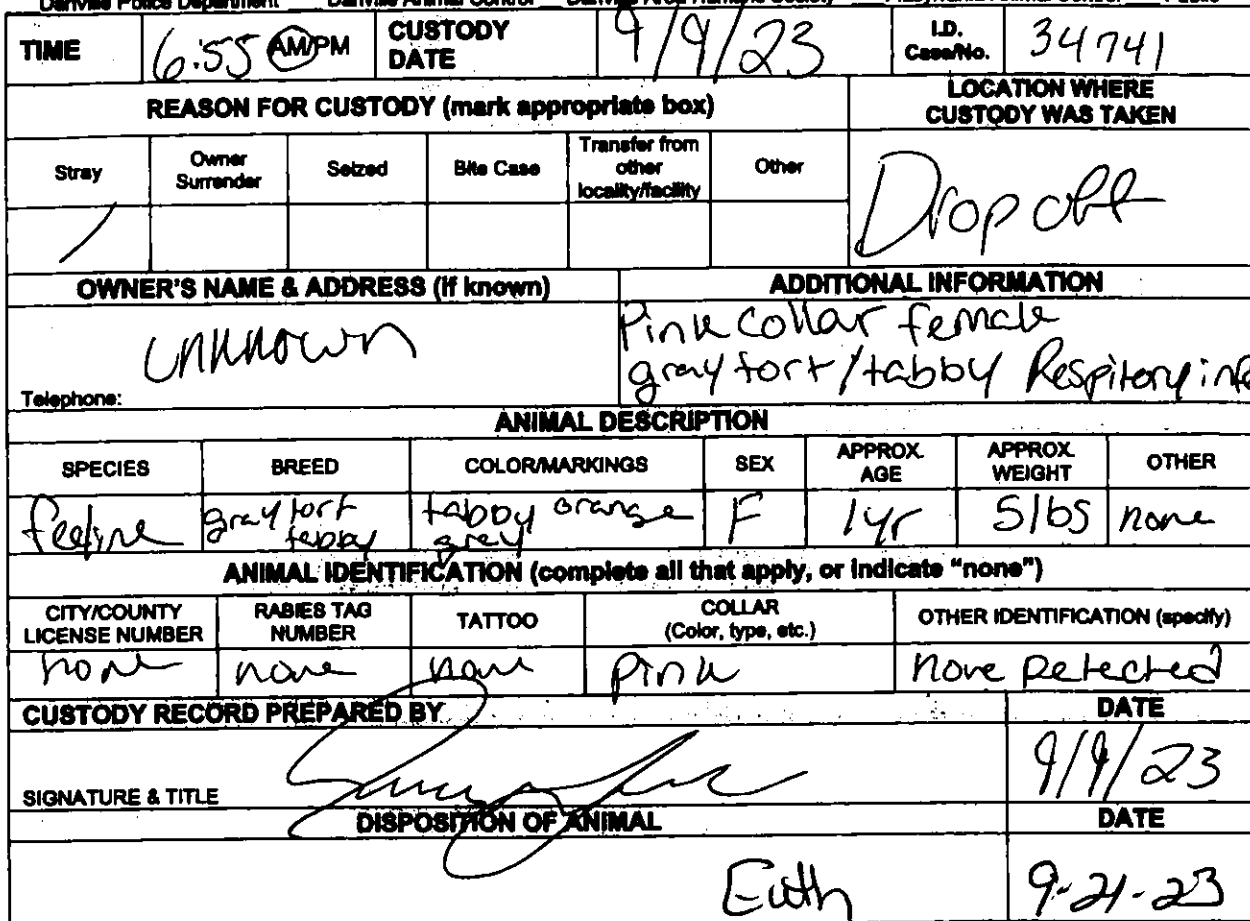 Danville Police Department Danville Animal Control Danville Area Humane Society Pittsylvania Animal Control Public
TIME 6:55 AM/PM CUSTODY DATE 9/9/23 I.D. Case/No. 34741
REASON FOR CUSTODY (mark appropriate box) LOCATION WHERE CUSTODY WAS TAKEN
Stray Owner Surrender Seized Bite Case Transfer from other locality/facility Other
/ Drop off
OWNER'S NAME & ADDRESS (if known) ADDITIONAL INFORMATION
unknown Pink Collar female
gray tort/tabby Respitory infe
Telephone:
ANIMAL DESCRIPTION
SPECIES BREED COLOR/MARKINGS SEX APPROX. AGE APPROX. WEIGHT OTHER
feeline gray tort tabby tabby orange grey F 1yr 5lbs none
ANIMAL IDENTIFICATION (complete all that apply, or indicate "none")
CITY/COUNTY LICENSE NUMBER RABIES TAG NUMBER TATTOO COLLAR (Color, type, etc.) OTHER IDENTIFICATION (specify)
none none none pink none Detected
CUSTODY RECORD PREPARED BY DATE
9/9/23
SIGNATURE & TITLE
DISPOSITION OF ANIMAL DATE
Euth 9-21-23